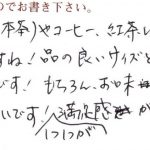 のでお書き下さい。
本茶)やコーヒー、紅茶い
すね!品の良いサイズと
です!もちろん、お味
いです!満足感が
1つ1つが